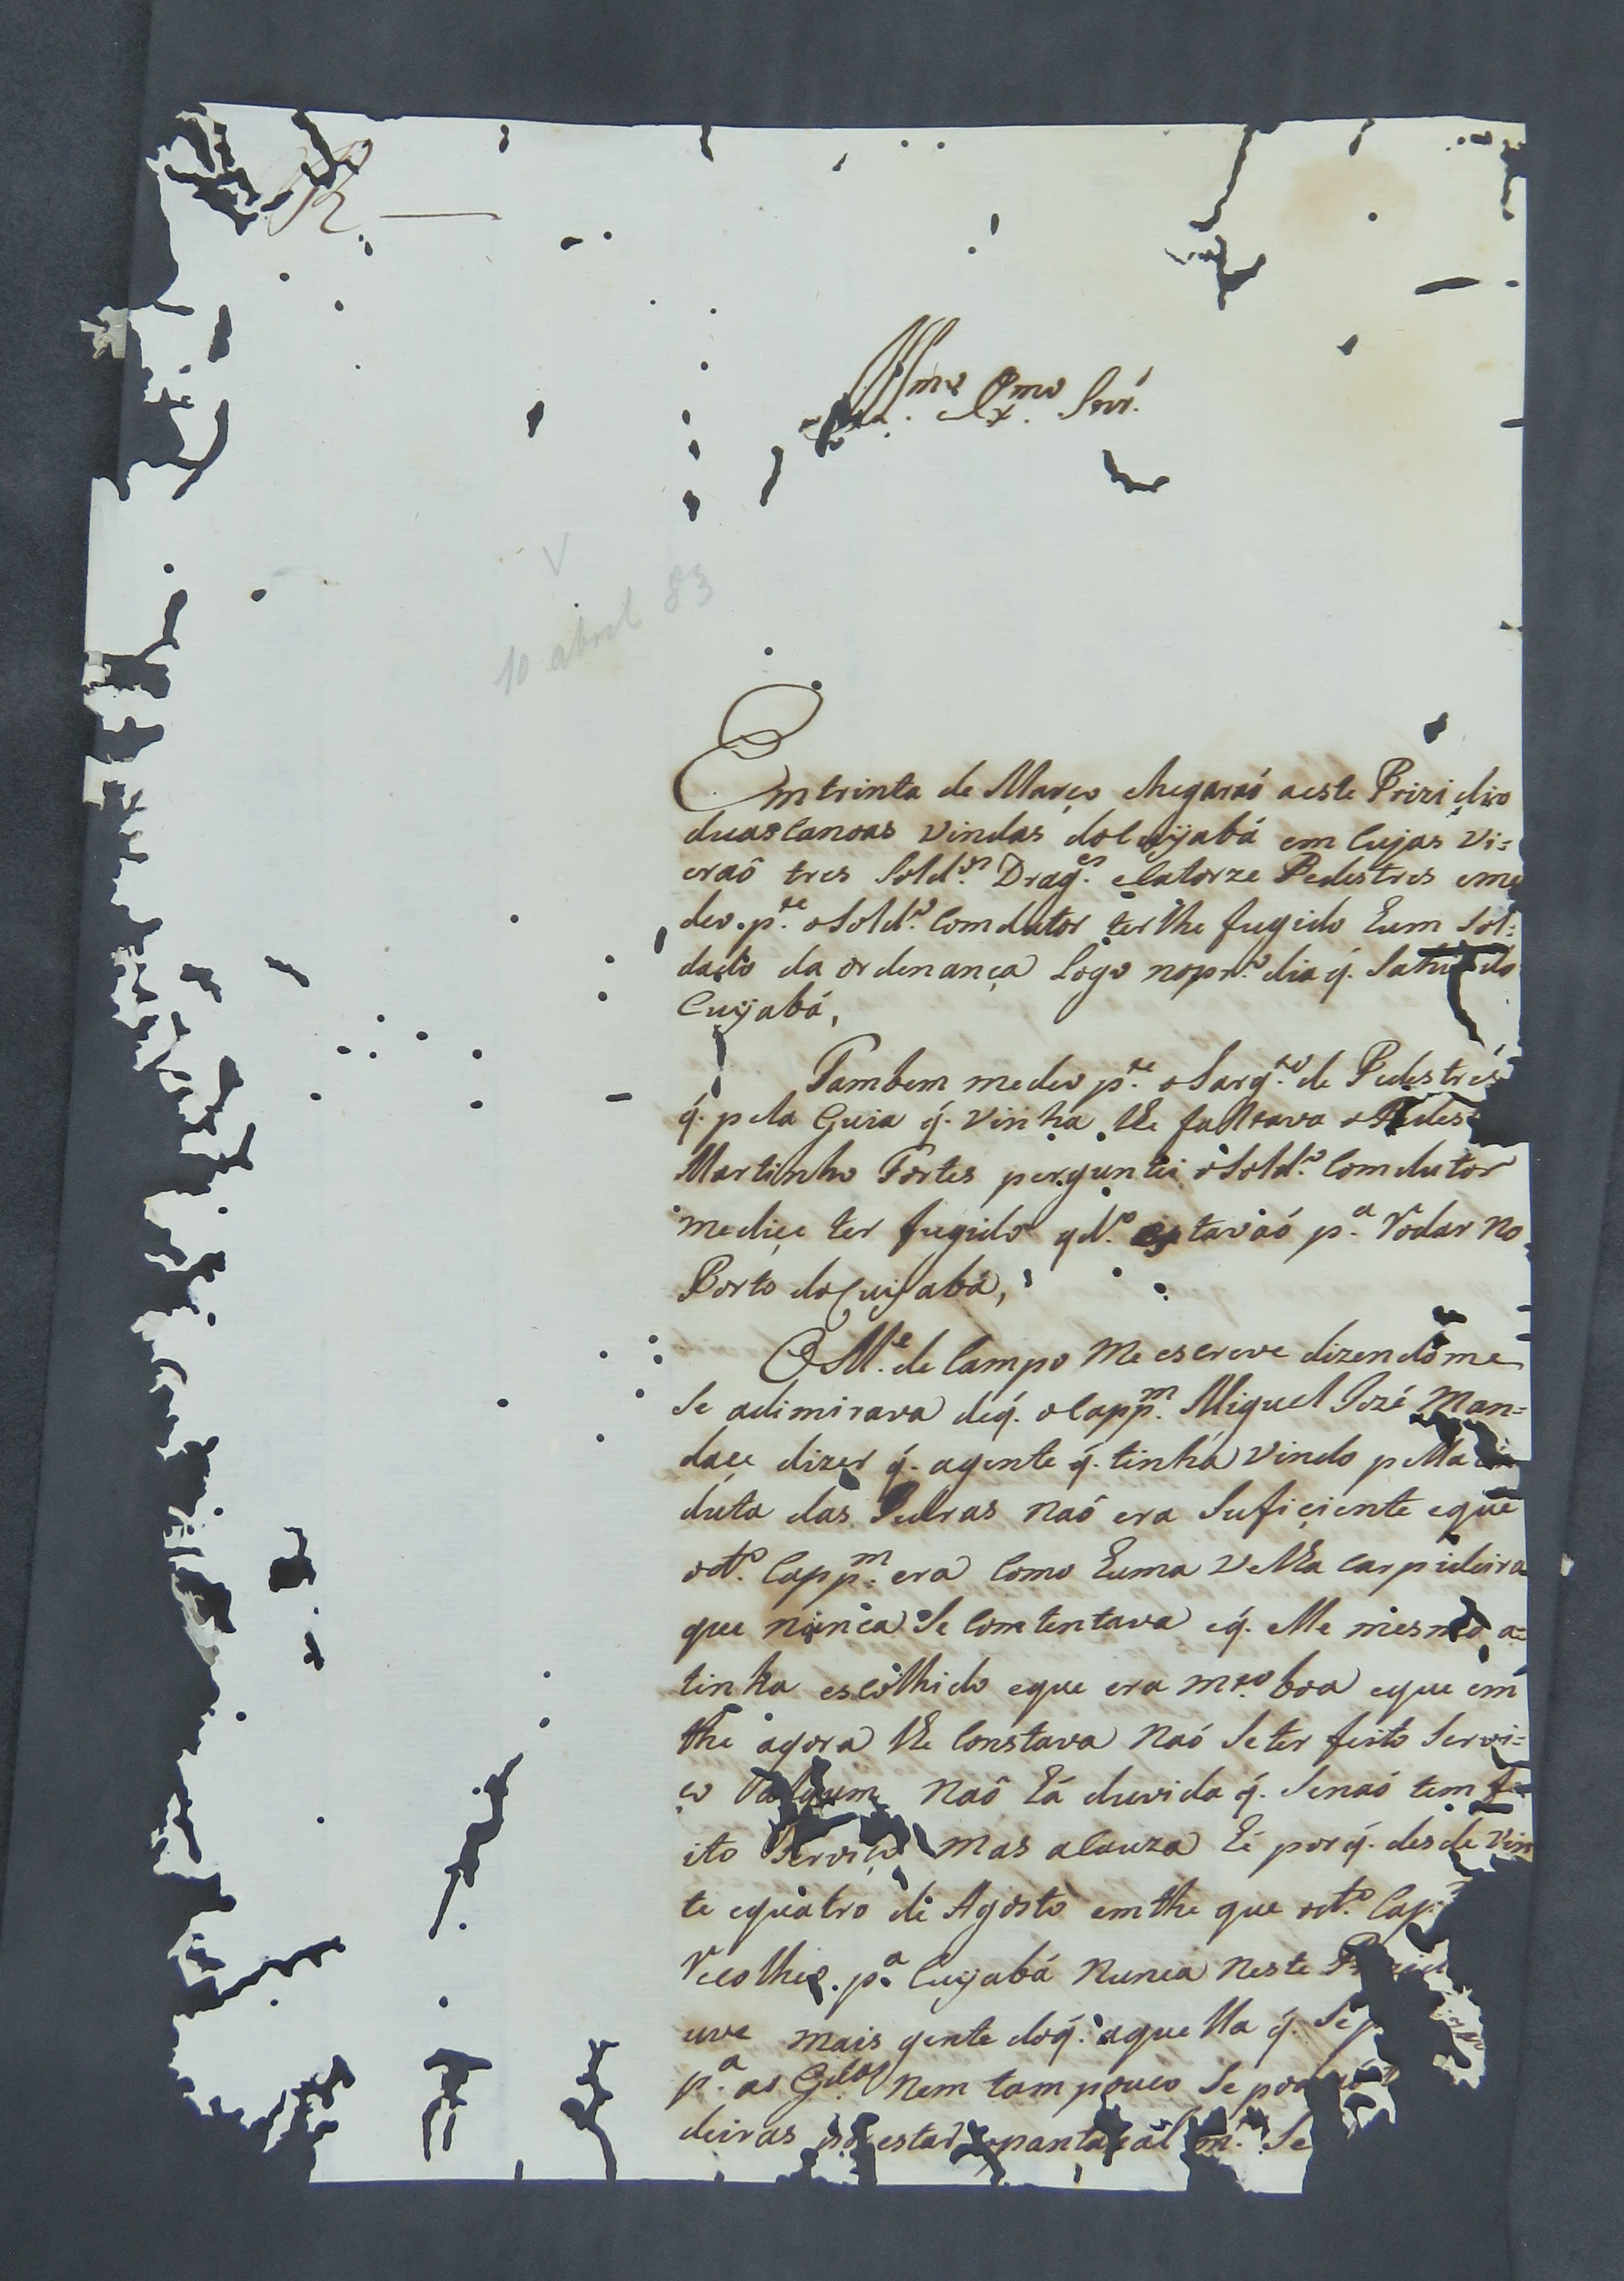 R
Illmo. Exmo. Snr.
10 abril 83
Em trinta de Março chegaraó aeste Prizidio
duas Canoas Vindas do Cuijabá em Cujas Vi=
eraõ tres Sold.os Drag.es e Catorze Pedestres eme
deo p.te o Sold.o Comdutor ter lhe fugido hum Sol=
dado da ordenança Logo no pr.o dia q. Sahio do
Cuijabá,
Tambem me deo p.te o Sarg.to de Pedestres
q. pela Guia q. Vinha lhe faltava o Pedes
Martinho Fortes perguntei o Sold.o Comdutor
me diçe ter fugido qd.o estavaó p.a Rodar no
Porto do Cuijabá,
O M.e de Campo Me escreve dizendo me
Se adimirava de q. o Capp.m Miguel Jozé Man=
daçe dizer q. agente q. tinha Vindo pella
duta das Pedras naõ era Suficiente eque
od.o Capp.m era Como huma Velha Carpideira
que nunca Se Comtentava eq. elle mesmo a=
tinha escolhido eque era m.to boa eque em
the agora lhe Constava Naó Se ter feito Servi=
ço algum Naõ há duvida q. Senaó tem fe
ito Serviço Mas aCauza hé porq. desde Vin
te equatro de Agosto emthe que od.o Cap.
Recolheo p.a Cuijabá Nunca Neste
uve mais gente doq. aquella q. Se
p.a as G.das Nem tam pouco Se
deiras por estar o pantanal m.to Se